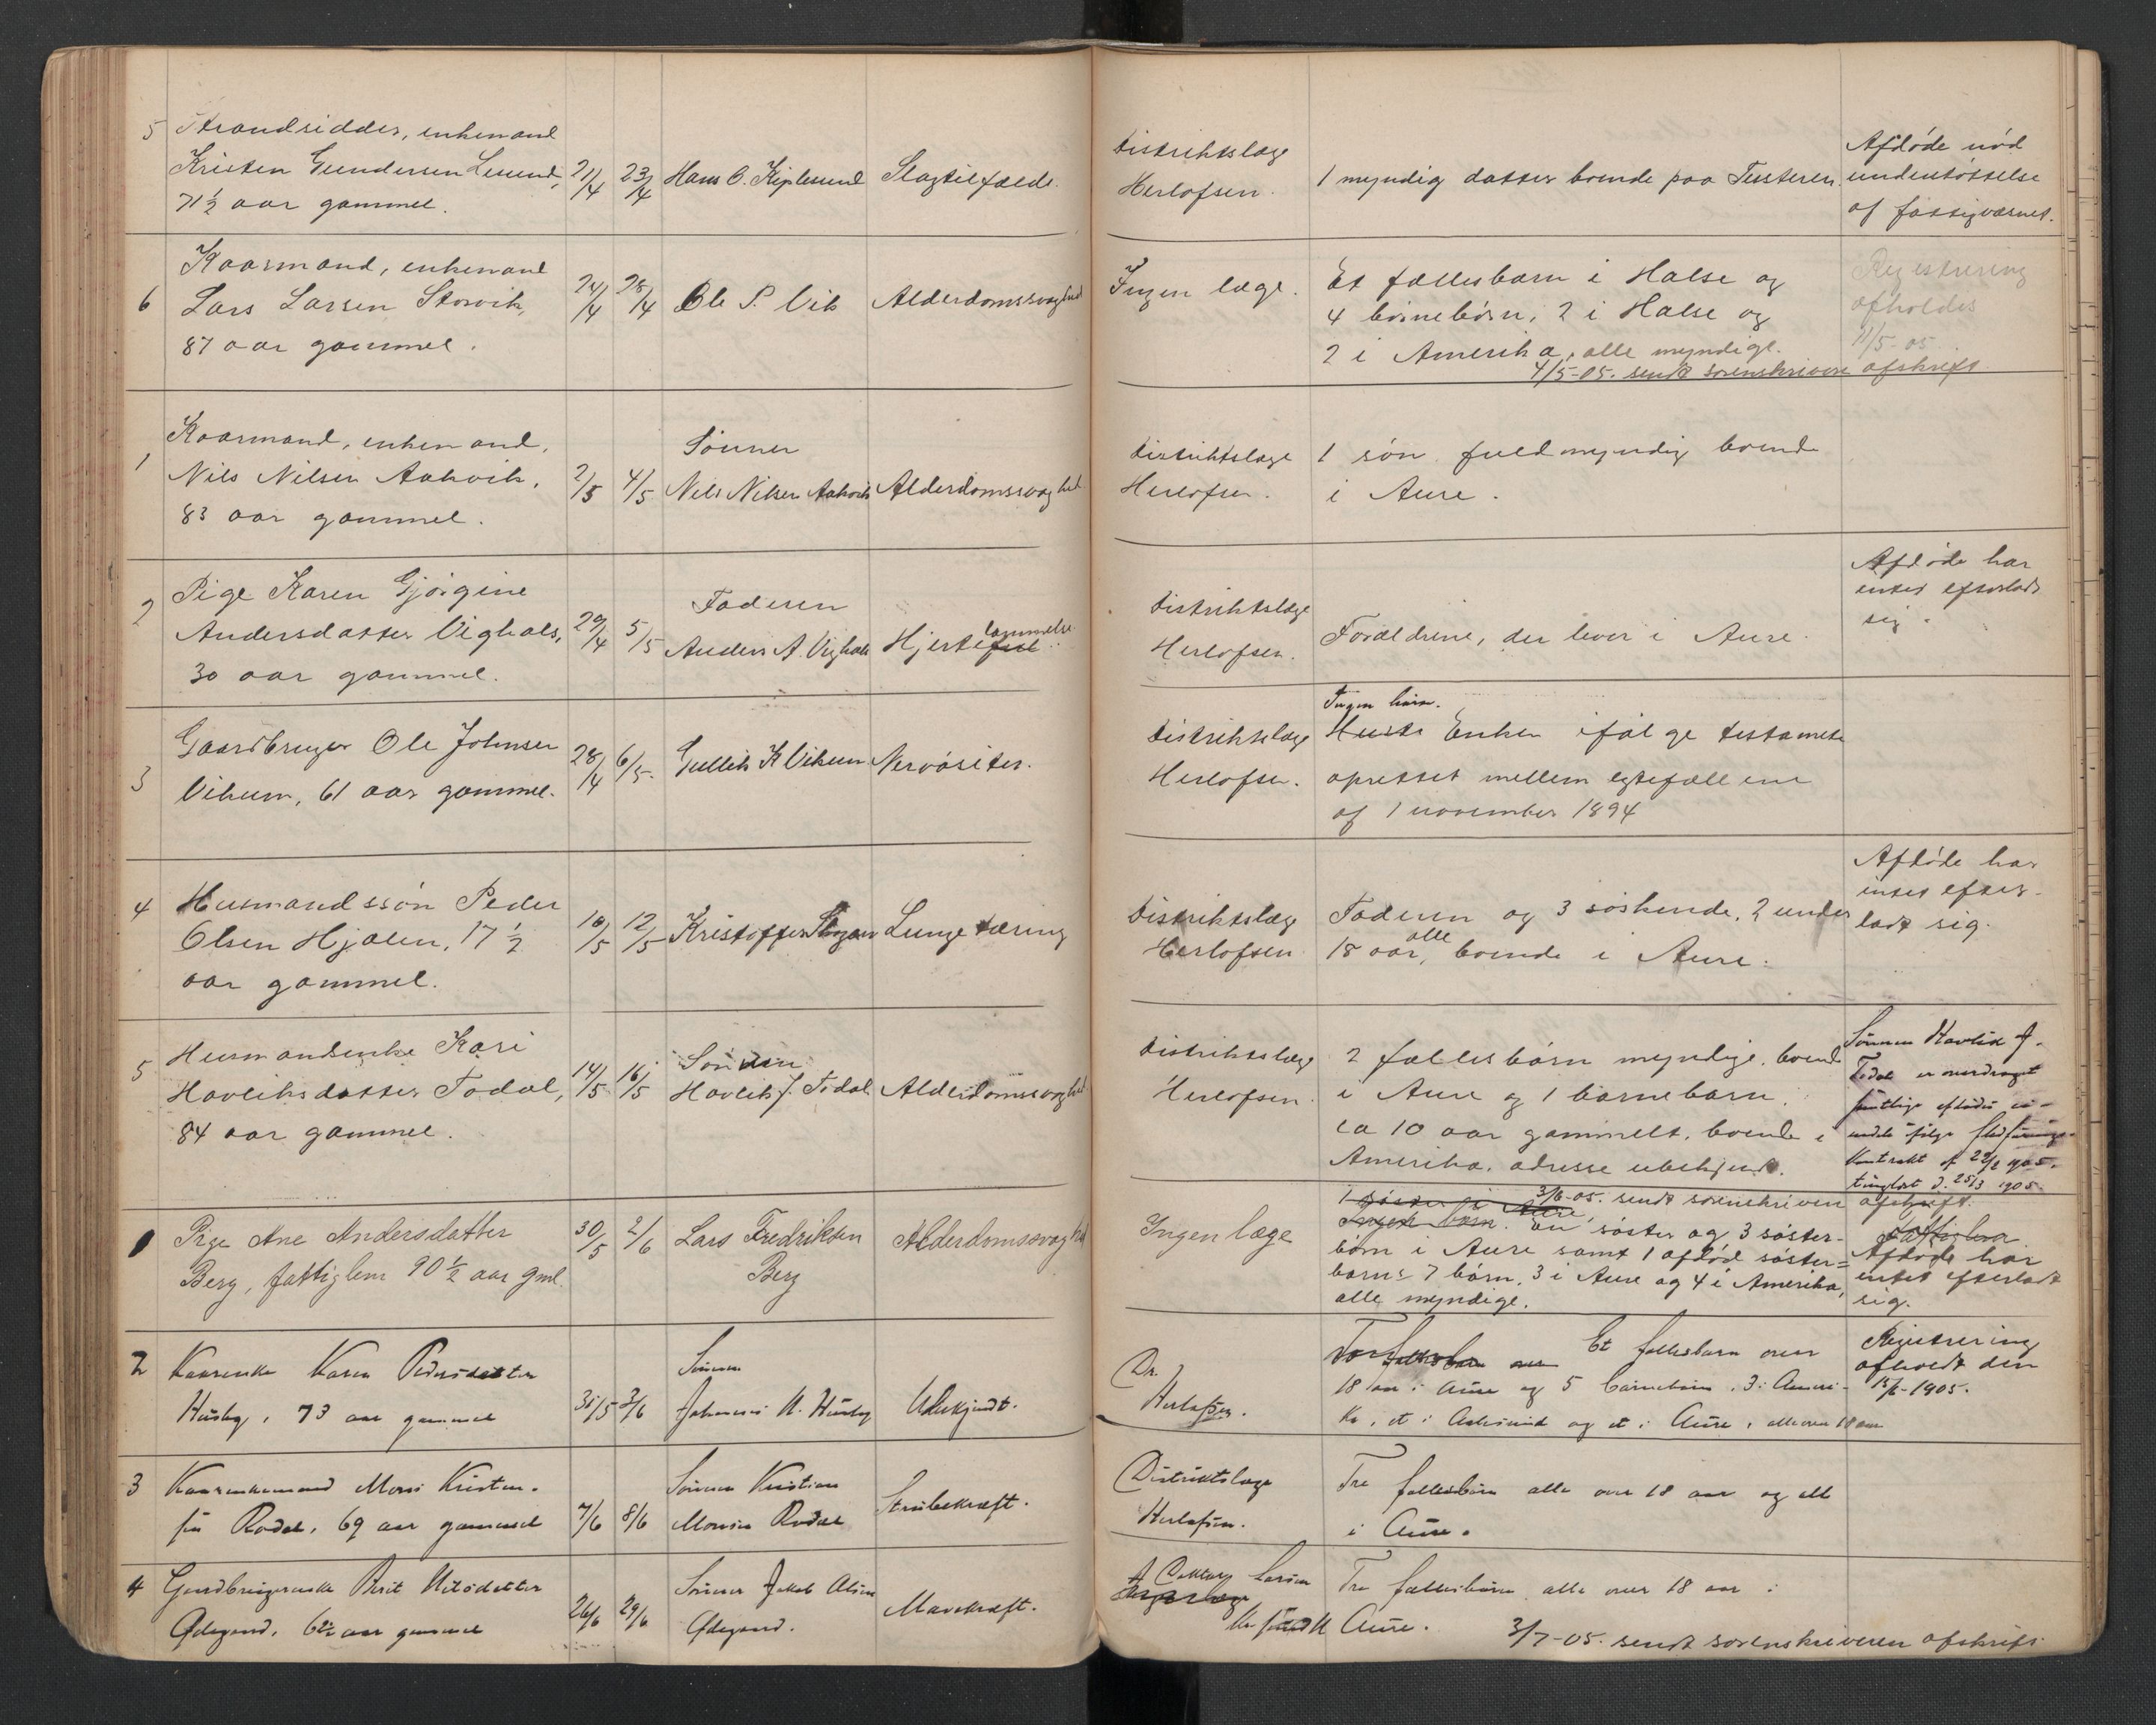 5 Strandsidder, enkemand
Kristen Gundersen Lesund,
71½ aar gammel.
21/4 23/4 Hans O. Kiplesund Slagtilfælde.
Distriktslæge
Herlofsen.
1 myndig datter boende paa Tusteren.
Afdøde nød
understøttelse
af fattigvæsnet.
6 Kaarmand, enkemand
Lars Larsen Storvik,
87 aar gammel.
24/4 28/4 Ole P. Vik Alderdomssvaghed
Ingen læge.
Et fællesbarn i Halse og
4 børnebørn; 2 i Halse og
2 i Amerika, alle myndige.
4/5-05. sendt sorenskriveren afskrift
Registrering
afholdes
11/5-05
1 Kaarmand, enkemand,
Nils Nilsen Aakvik,
83 aar gammel.
2/5 4/5
Sønnen
Nils Nilsen Aakvik Alderdomssvaghed
Distriktslæge
Herlofsen.
1 søn fuldmyndig boende
i Aure.
2 Pige Karen Gjørgine
Andersdatter Vighals,
30 aar gammel.
29/4 5/5
Faderen
Anders A. Vighals Hjertelammelse
Distriktslæge
Herlofsen.
Forældrene, der lever i Aure.
Afdøde har
intet efterladt
sig.
3 Gaardbruger Ole Johnsen
Vihum, 61 aar gammel.
28/4 6/5. Gullik K Vihum Nervøsitet.
Distriktslæge
Herlofsen.
Ingen børn.
Enken ifølge testamete
oprettet mellem egtefællene
af 1 november 1894
4 Husmandssøn Peder
Olsen Hjølen, 17½
aar gammel.
10/5 12/5 Kristoffer Lungetæring
Distriktslæge
Herlofsen
Faderen og 3 søskende, 2 under
18 aar, alle boende i Aure.
Afdøde har
intet efter-
ladt sig.
5 Husmandsenke Kari
Havliksdatter Todal,
84 aar gammel.
14/5 16/5
Sønnen
Havlik J. Todal Alderdomssvaghed
Distriktslæge
Herlofsen.
2 fællesbørn myndige, boende
i Aure og 1 barnebarn,
ca 10 aar gammelt, boende i
Amerika, adresse ubekjendt.
3/6-05. sendt sorenskriveren afskrift.
Sønnen Havlik J.
Todal er overdraget
samtlige afdødes ei-
endele ifølge fledførings-
kontrakt af 22/2 1905.
tinglæst d. 25/3 1905.
1 Pige Ane Andersdatter
Berg, fattiglem 90½ aar gml.
30/5 2/6 Lars Fredriksen
Berg
Alderdomssvaghed
Ingen læge
1 søster i Aure
Ingen børn. en søster og 3 søster-
børn i Aure samt 1 afdød søster=
barns 7 børn, 3 i Aure og 4 i Amerika,
alle myndige.
Fattiglem
Afdøde har
intet efterladt
sig.
2 Kaarenke Karen Pedersdatter
Husby, 73 aar gammel
31/5 3/6
Sønnen
Johannes N. Husby Ubekjendt.
Dr.
Herlofsen.
Et fællesbarn over
18 aar i Aure og 5 børnebørn, 3 i Ameri-
ka, et i Aalesund og et i Aure, alle over 18 aar
Registrering
afholdt den
15/6-1905.
3 Kaarenkemand Mons Kristen-
sen Rodal, 69 aar gammel
7/6 8/6
Sønnen Kristian
Monsen Rodal
Strubekræft.
Distriktslæge
Herlofsen.
Tre fællesbørn alle over 18 aar og alle
i Aure.
4 Gardbrugerenke Berit Nilsdatter
Ødegard, 62½ aar gammel
26/6 29/6
Sønnen Jakob Olsen
Ødegard.
Mavekræft.
Doktor Larsen
Kr.sund N
Tre fællesbørn alle over 18 aar i
Aure.
3/7-05. sendt sorenskriveren afskrift.